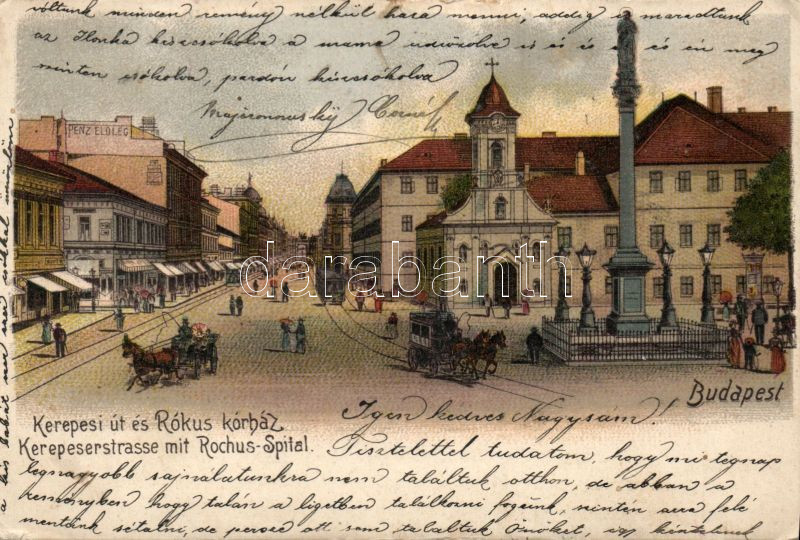 voltunk minden remény nélkül haza menni, addig is maradtunk
az Ilonka kézcsókolva a mama üdvözölve is és és én meg
minten csókolva, pardon kézcsókolva
Kornél
PÉNZ ELŐLEG
darabanth
Budapest
Kerepesi út és Rókus kórház
Kerepeserstrasse mit Rochus-Spital.
Igen kedves Nagysám!
Tisztelettel tudatom, hogy mi tegnap
legnagyobb sajnálatunkra nem találtuk otthon, de abban a
reményben hogy talán a ligetben találkozni fogunk, szintén arra felé
mentünk sétálni, de persze ott sem találtuk Önöket, így kénytelenek